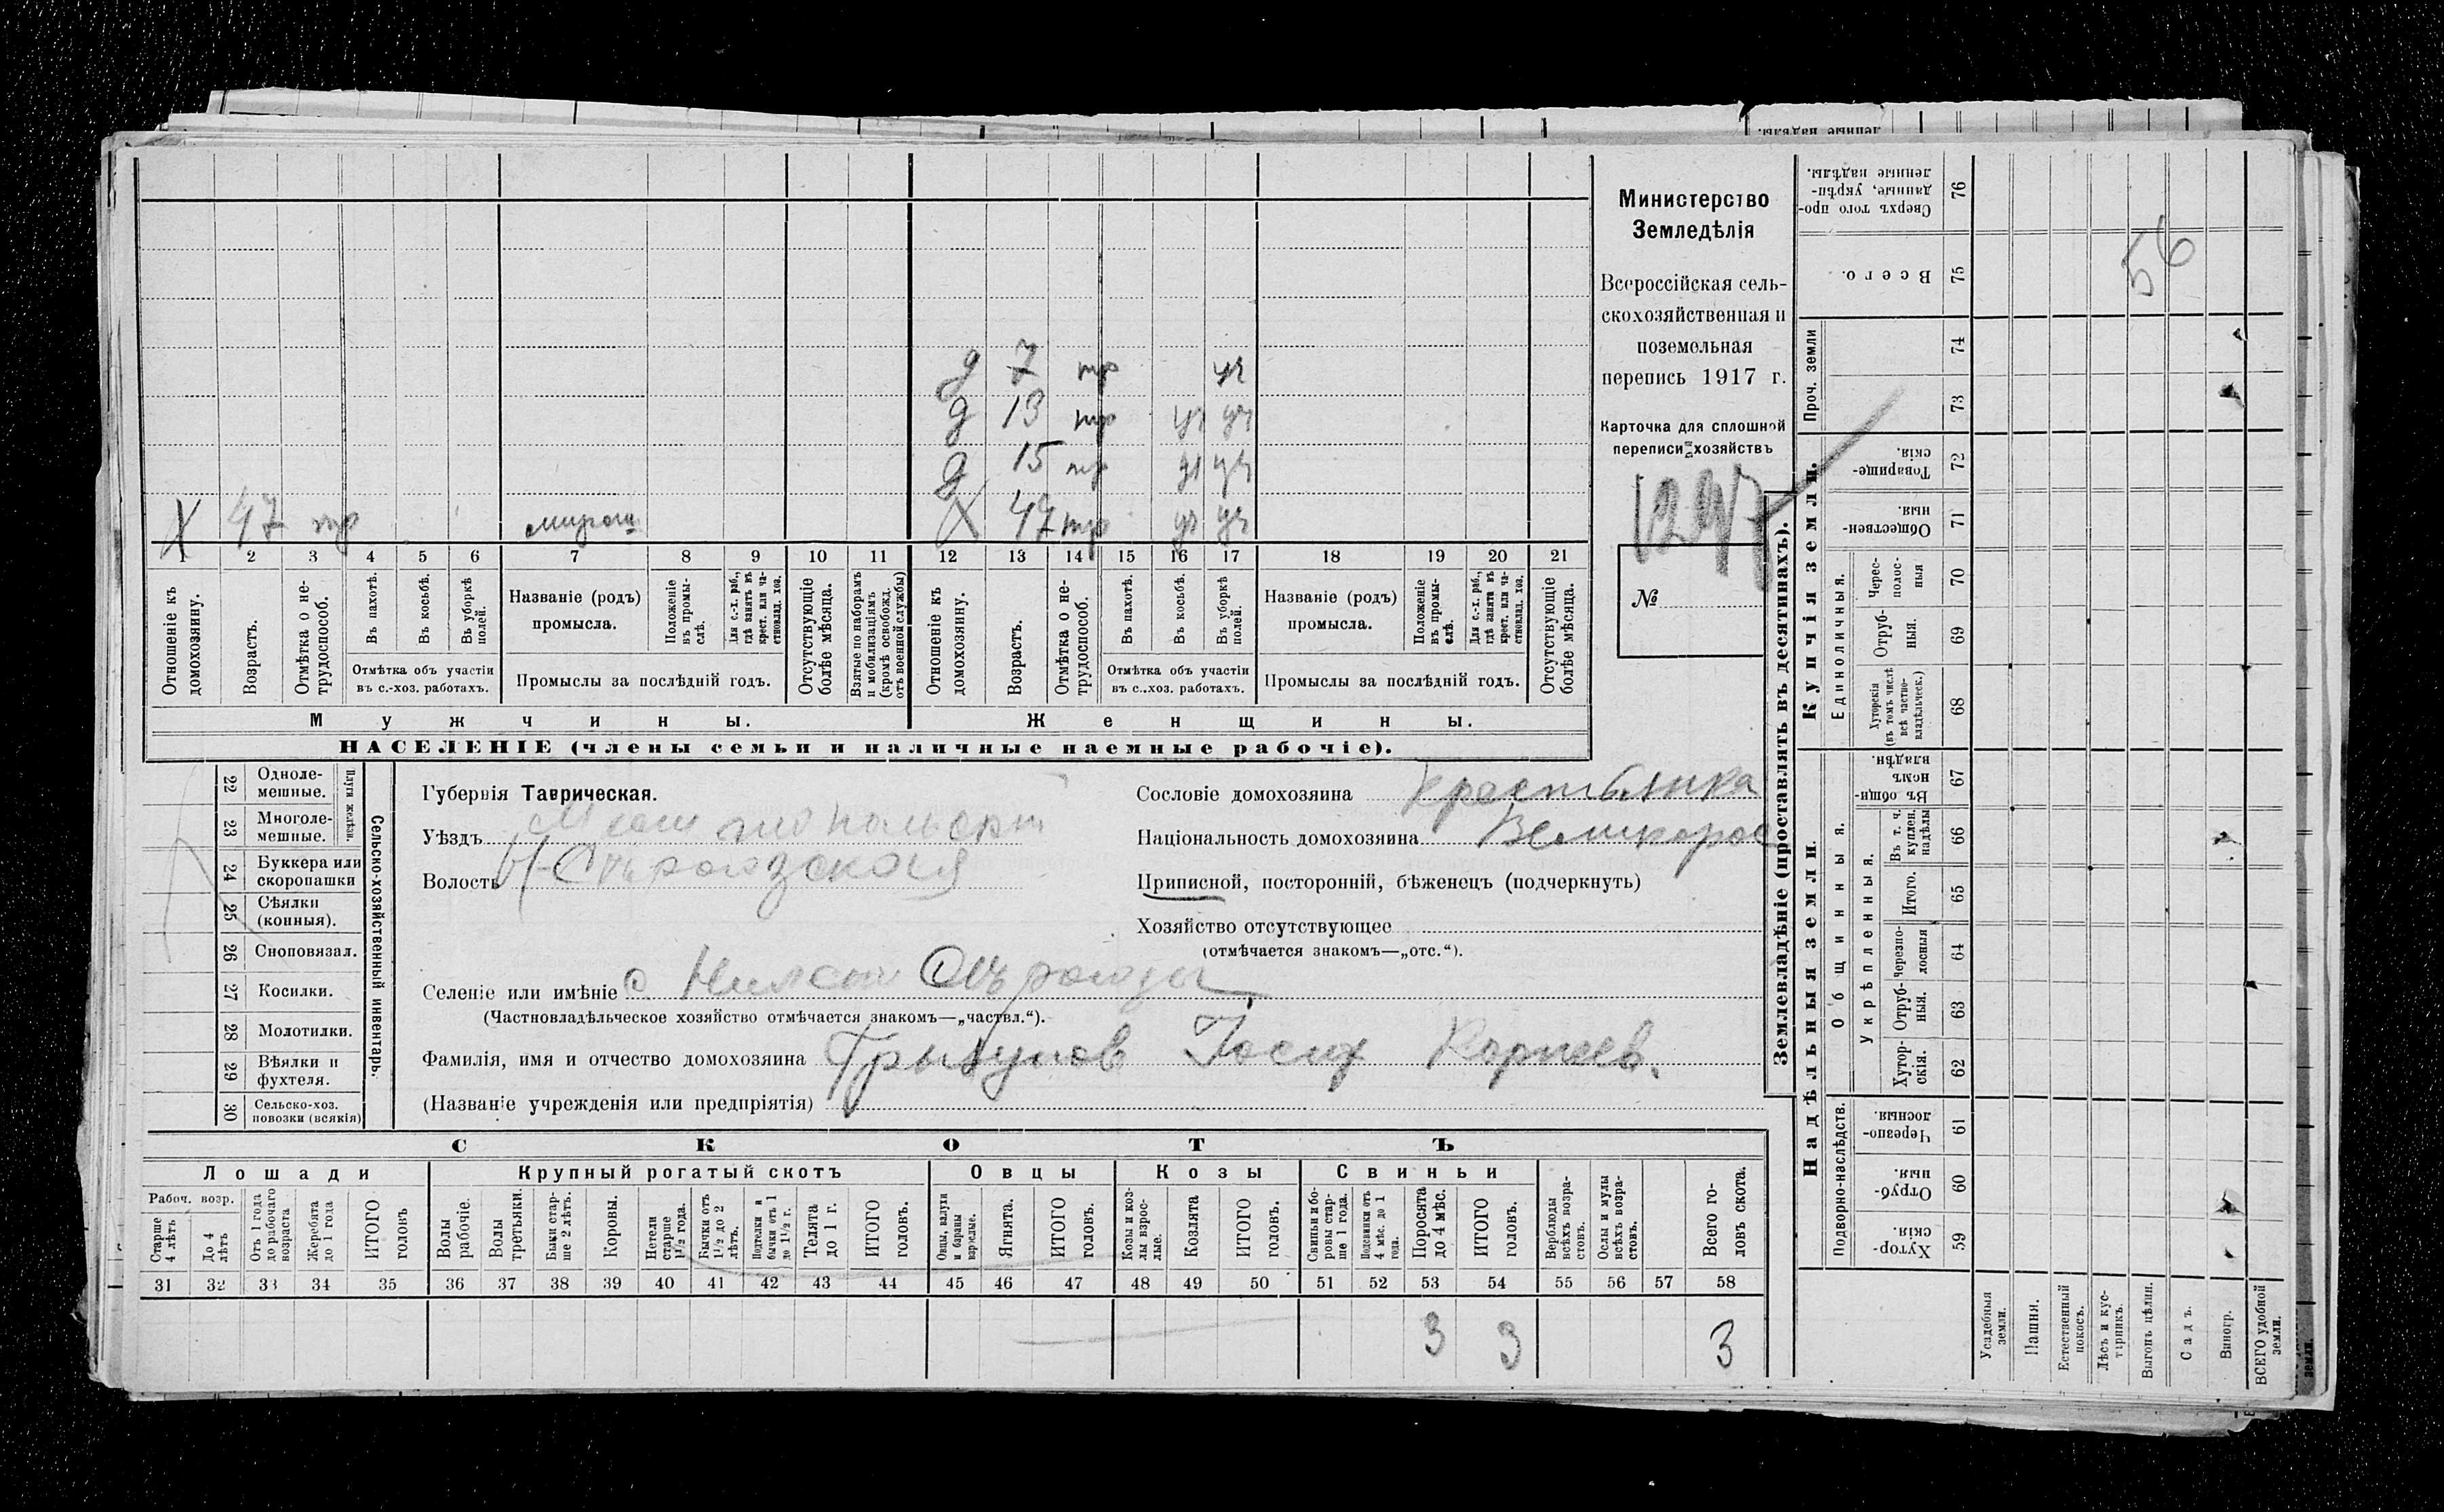 Министерство
Земледѣлія
Всероссійская сель-
скохозяйственная и
поземельная
перепись 1917 г.
Карточка для сплошной
переписи хозяйствъ
1247
№
56
д 7 тр уч
д 13 тр уч уч
д 15 тр уч уч
Х 47 тр Х 47 тр уч уч
1 2 3 4 5 6 7 8 9 10 11 12 13 14 15 16 17 18 19 20 21
Отношеніе къ домохозяину.
Возрастъ.
Отмѣтка о не-трудоспособ.
Въ пахотѣ.
Въ косьбѣ.
Въ уборкѣ полей.
Отмѣтка объ участіи
въ с.-хоз. работахъ.
Названіе (родъ)
промысла.
Положеніе въ промы-слѣ.
Для с.-х. раб., гдѣ занятъ въ крест. или ча-стновлад. хоз.
Промыслы за послѣдній годъ.
Отсутствующіе болѣе мѣсяца.
Взятые по наборамъ и мобилизаціямъ (кромѣ освобожд. отъ военной службы)
Отношеніе къ домохозяину.
Возрастъ.
Отмѣтка о не-трудоспособ.
Въ пахотѣ.
Въ косьбѣ.
Въ уборкѣ полей.
Отмѣтка объ участіи
въ с.-хоз. работахъ.
Названіе (родъ)
промысла.
Положеніе въ промы-слѣ.
Для с.-х. раб., гдѣ занята въ крест. или ча-стновлад. хоз.
Промыслы за послѣдній годъ.
Отсутствующіе болѣе мѣсяца.
Мужчины. Женщины.
НАСЕЛЕНІЕ (члены семьи и наличные наемные рабочіе).
Сельско-хозяйственный инвентарь.
Плуги желѣзн.
22 Одноле-мешные.
23 Многоле-мешные.
24 Буккера или скоропашки
25 Сѣялки (конныя).
26 Сноповязал.
27 Косилки.
28 Молотилки.
29 Вѣялки и фухтеля.
30 Сельско-хоз. повозки (всякія)
Губернія Таврическая.
Уѣздъ
Волость
Сословіе домохозяина крестьянка
Національность домохозяина Великорос
Приписной, посторонній, бѣженецъ (подчеркнуть)
Хозяйство отсутствующее
(отмѣчается знакомъ—„отс.“).
Селеніе или имѣніе с
(Частновладѣльческое хозяйство отмѣчается знакомъ—„частвл.“).
Фамилія, имя и отчество домохозяина Іосиф Корнеев.
(Названіе учрежденія или предпріятія)
СКОТЪ
Лошади Крупный рогатый скотъ Овцы Козы Свиньи
Рабоч. возр.
Старше 4 лѣтъ
До 4 лѣтъ
Отъ 1 года до рабочаго возраста
Жеребята до 1 года
ИТОГО головъ
Волы рабочіе.
Волы третьяки.
Быки стар-ше 2 лѣтъ.
Коровы.
Нетели старше 1½ года.
Бычки отъ 1½ до 2 лѣтъ.
Подтелки и бычки отъ 1 до 1½ г.
Телята до 1 г.
ИТОГО головъ.
Овцы, валухи и бараны взрослые.
Ягнята.
ИТОГО головъ.
Козы и коз-лы взрос-лые.
Козлята
ИТОГО головъ.
Свиньи и бо-ровы стар-ше 1 года.
Подсвинки отъ 4 мѣс. до 1 года.
Поросята до 4 мѣс.
ИТОГО головъ.
Верблюды всѣхъ возра-стовъ.
Ослы и мулы всѣхъ возра-стовъ.
Всего го-ловъ скота.
31 32 33 34 35 36 37 38 39 40 41 42 43 44 45 46 47 48 49 50 51 52 53 54 55 56 57 58
3 3 3
Землевладѣніе (проставлять въ десятинахъ).
Купчія земли.
Надѣльныя земли.
Проч. земли
Единоличныя.
Общинныя.
Укрѣпленныя.
Подворно-наслѣдств.
76 Сверхъ того про-данные, укрѣп-ленные надѣлы.
75 Всего.
74
73
72 Товарище-скія.
71 Обществен-ныя.
70 Черес-полос-ныя
69 Отруб-ныя.
68 Хуторскія (въ томъ числѣ всѣ частно-владѣльческ.)
67 Въ общин-номъ владѣн.
66 Въ т. ч. куплен. надѣлы
65 Итого.
64 Черезпо-лосныя
63 Отруб-ныя.
62 Хутор-скія.
61 Черезпо-лосныя.
60 Отруб-ныя.
59 Хутор-скія.
Усадебныя земли.
Пашня.
Естественный покосъ.
Лѣсъ и кус-тарникъ.
Выгонъ цѣлин.
Садъ.
Виногр.
ВСЕГО удобной земли.